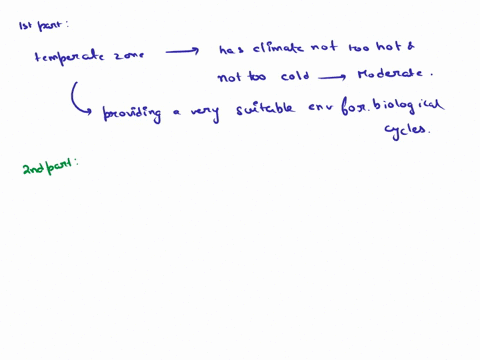 1st part:
temperate zone → has climate not too hot &
not too cold → Moderate.
→ providing a very suitable env for biological
cycles.
2nd part: